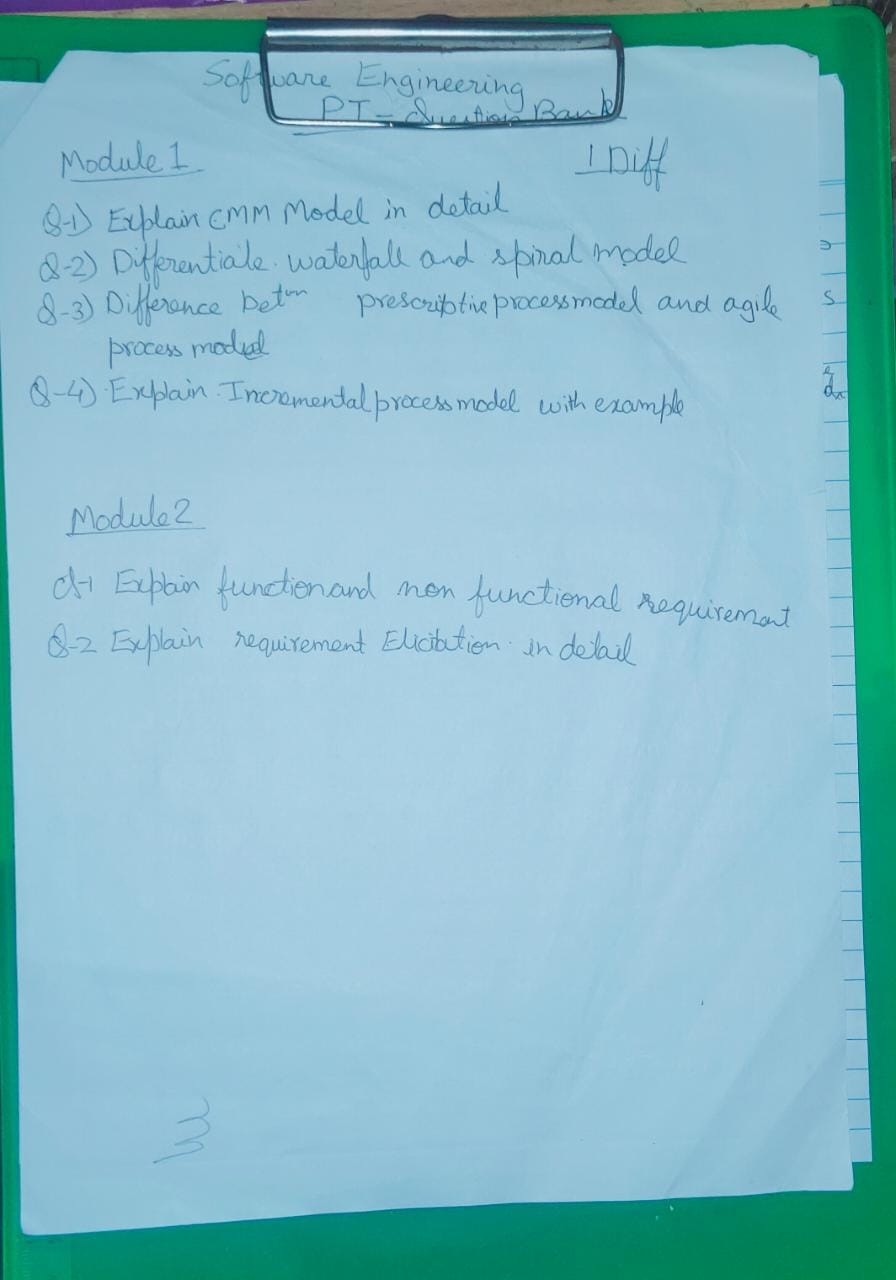 Software Engineering
PT - Question Bank
Module 1
1 Diff
Q-1) Explain CMM Model in detail
Q-2) Differentiate. waterfall and spiral model
Q-3) Difference betⁿ prescriptive process model and agile
process model
Q-4) Explain. Incremental process model with example
Module 2
Q-1 Explain function and non functional requirement
Q-2 Explain requirement Elicitation. in detail